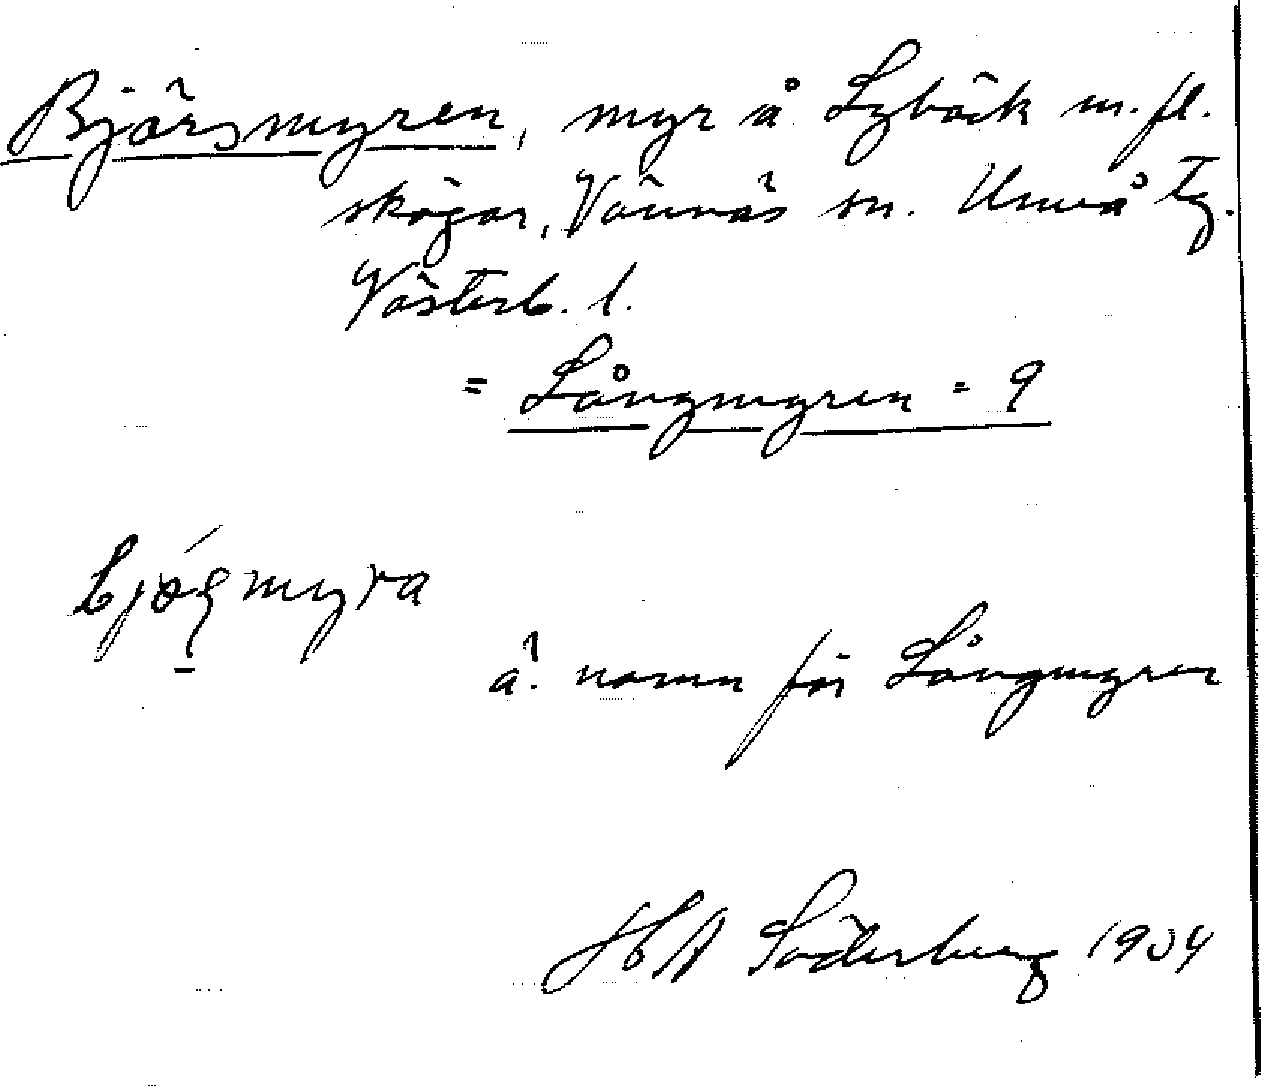 Björsmyren, myr å Lybäck m. fl.
skogar, Vännäs sn. Umeå tg.
Västerb. l.
= Långmyren - 9
myra
ä. namn för Långmyren
Söderberg 1934